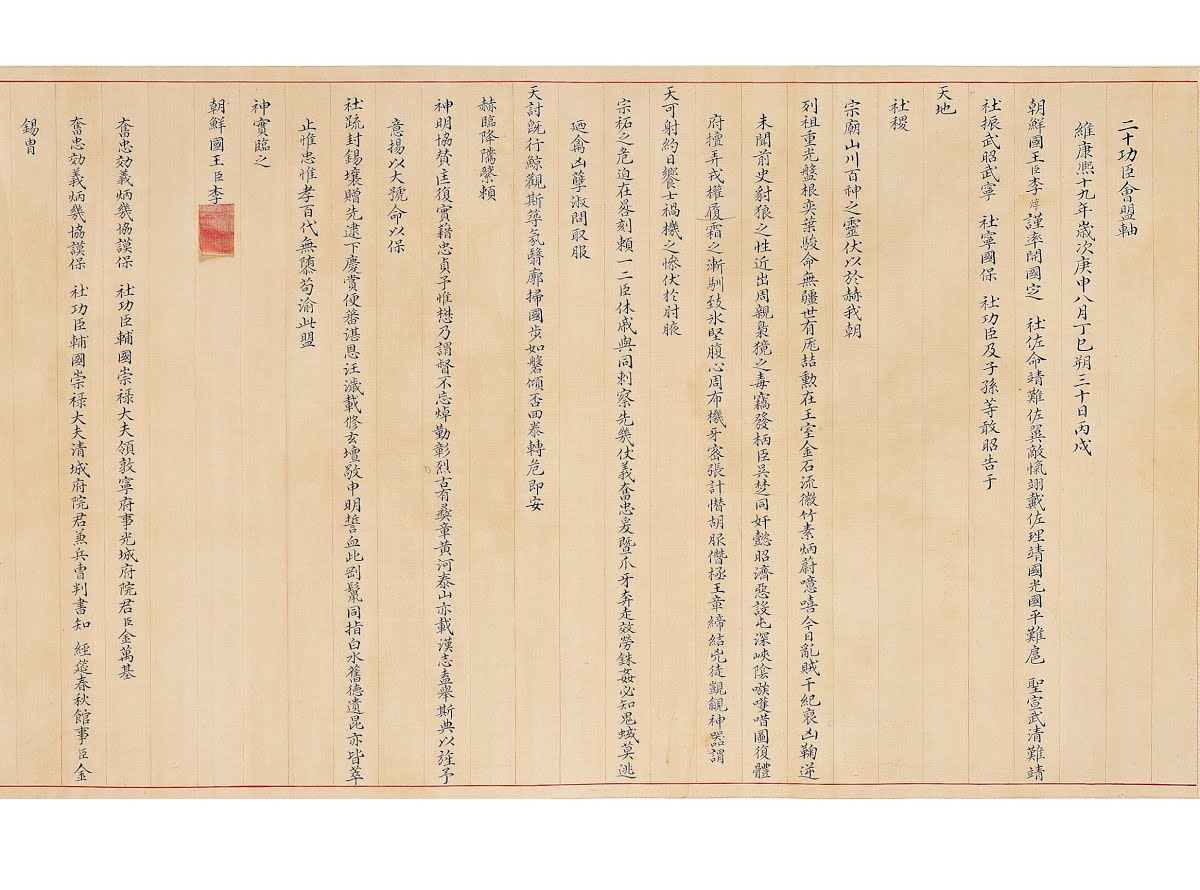 二十功臣會盟軸
維康熙十九年歲次庚申八月丁巳朔三十日丙戌
朝鮮國王臣李焞謹率開國定 社佐命靖難佐翼敵愾翊戴佐理靖國光國平難扈 聖宣武清難靖
社振武昭武寧 社寧國保 社功臣及子孫等敢昭告于
天地
社稷
宗廟山川百神之靈伏以於赫我朝
列祖重光盤根奕葉駿命無疆世有厖喆勳在王室金石流徽竹素炳蔚噫嘻今日亂賊干紀裒凶鞠逆
未聞前史豺狼之性近出周親梟獍之毒竊發柄臣吳楚同奸懿昭濟惡設屯深峽陰嗾嚄唶圖復體
府擅弄戎權履霜之漸馴致氷堅腹心周布機牙密張計憯胡服僭極王章締結兇徒覬覦神器謂
天可射約日饗士禍機之慘伏於肘腋
宗祏之危迫在晷刻賴一二臣休戚與同刺察先幾仗義奮忠爰曁爪牙奔走效勞銖姦必知鬼蜮莫逃
廼禽凶孼淑問取服
天討旣行鯨觀斯築氛翳廓掃國步如磐傾否回泰轉危即安
赫臨降隲繄賴
神明協賛匡復實藉忠貞予惟懋乃謂督不忘焯勤彰烈古有彝章黃河泰山亦載漢志盍舉斯典以旌予
意揚以大號命以保
社疏封錫壤贈先逮下慶賞便蕃湛恩汪濊載修玄壇敬申明誓血此刲鬣同指白水舊德遺昆亦皆萃
止惟忠惟孝百代無隳苟渝此盟
神實臨之
朝鮮國王臣李
奮忠効義炳幾協謨保 社功臣輔國崇祿大夫領敦寧府事光城府院君臣金萬基
奮忠効義炳幾協謨保 社功臣輔國崇祿大夫清城府院君兼兵曹判書知 經筵春秋館事臣金
錫胄